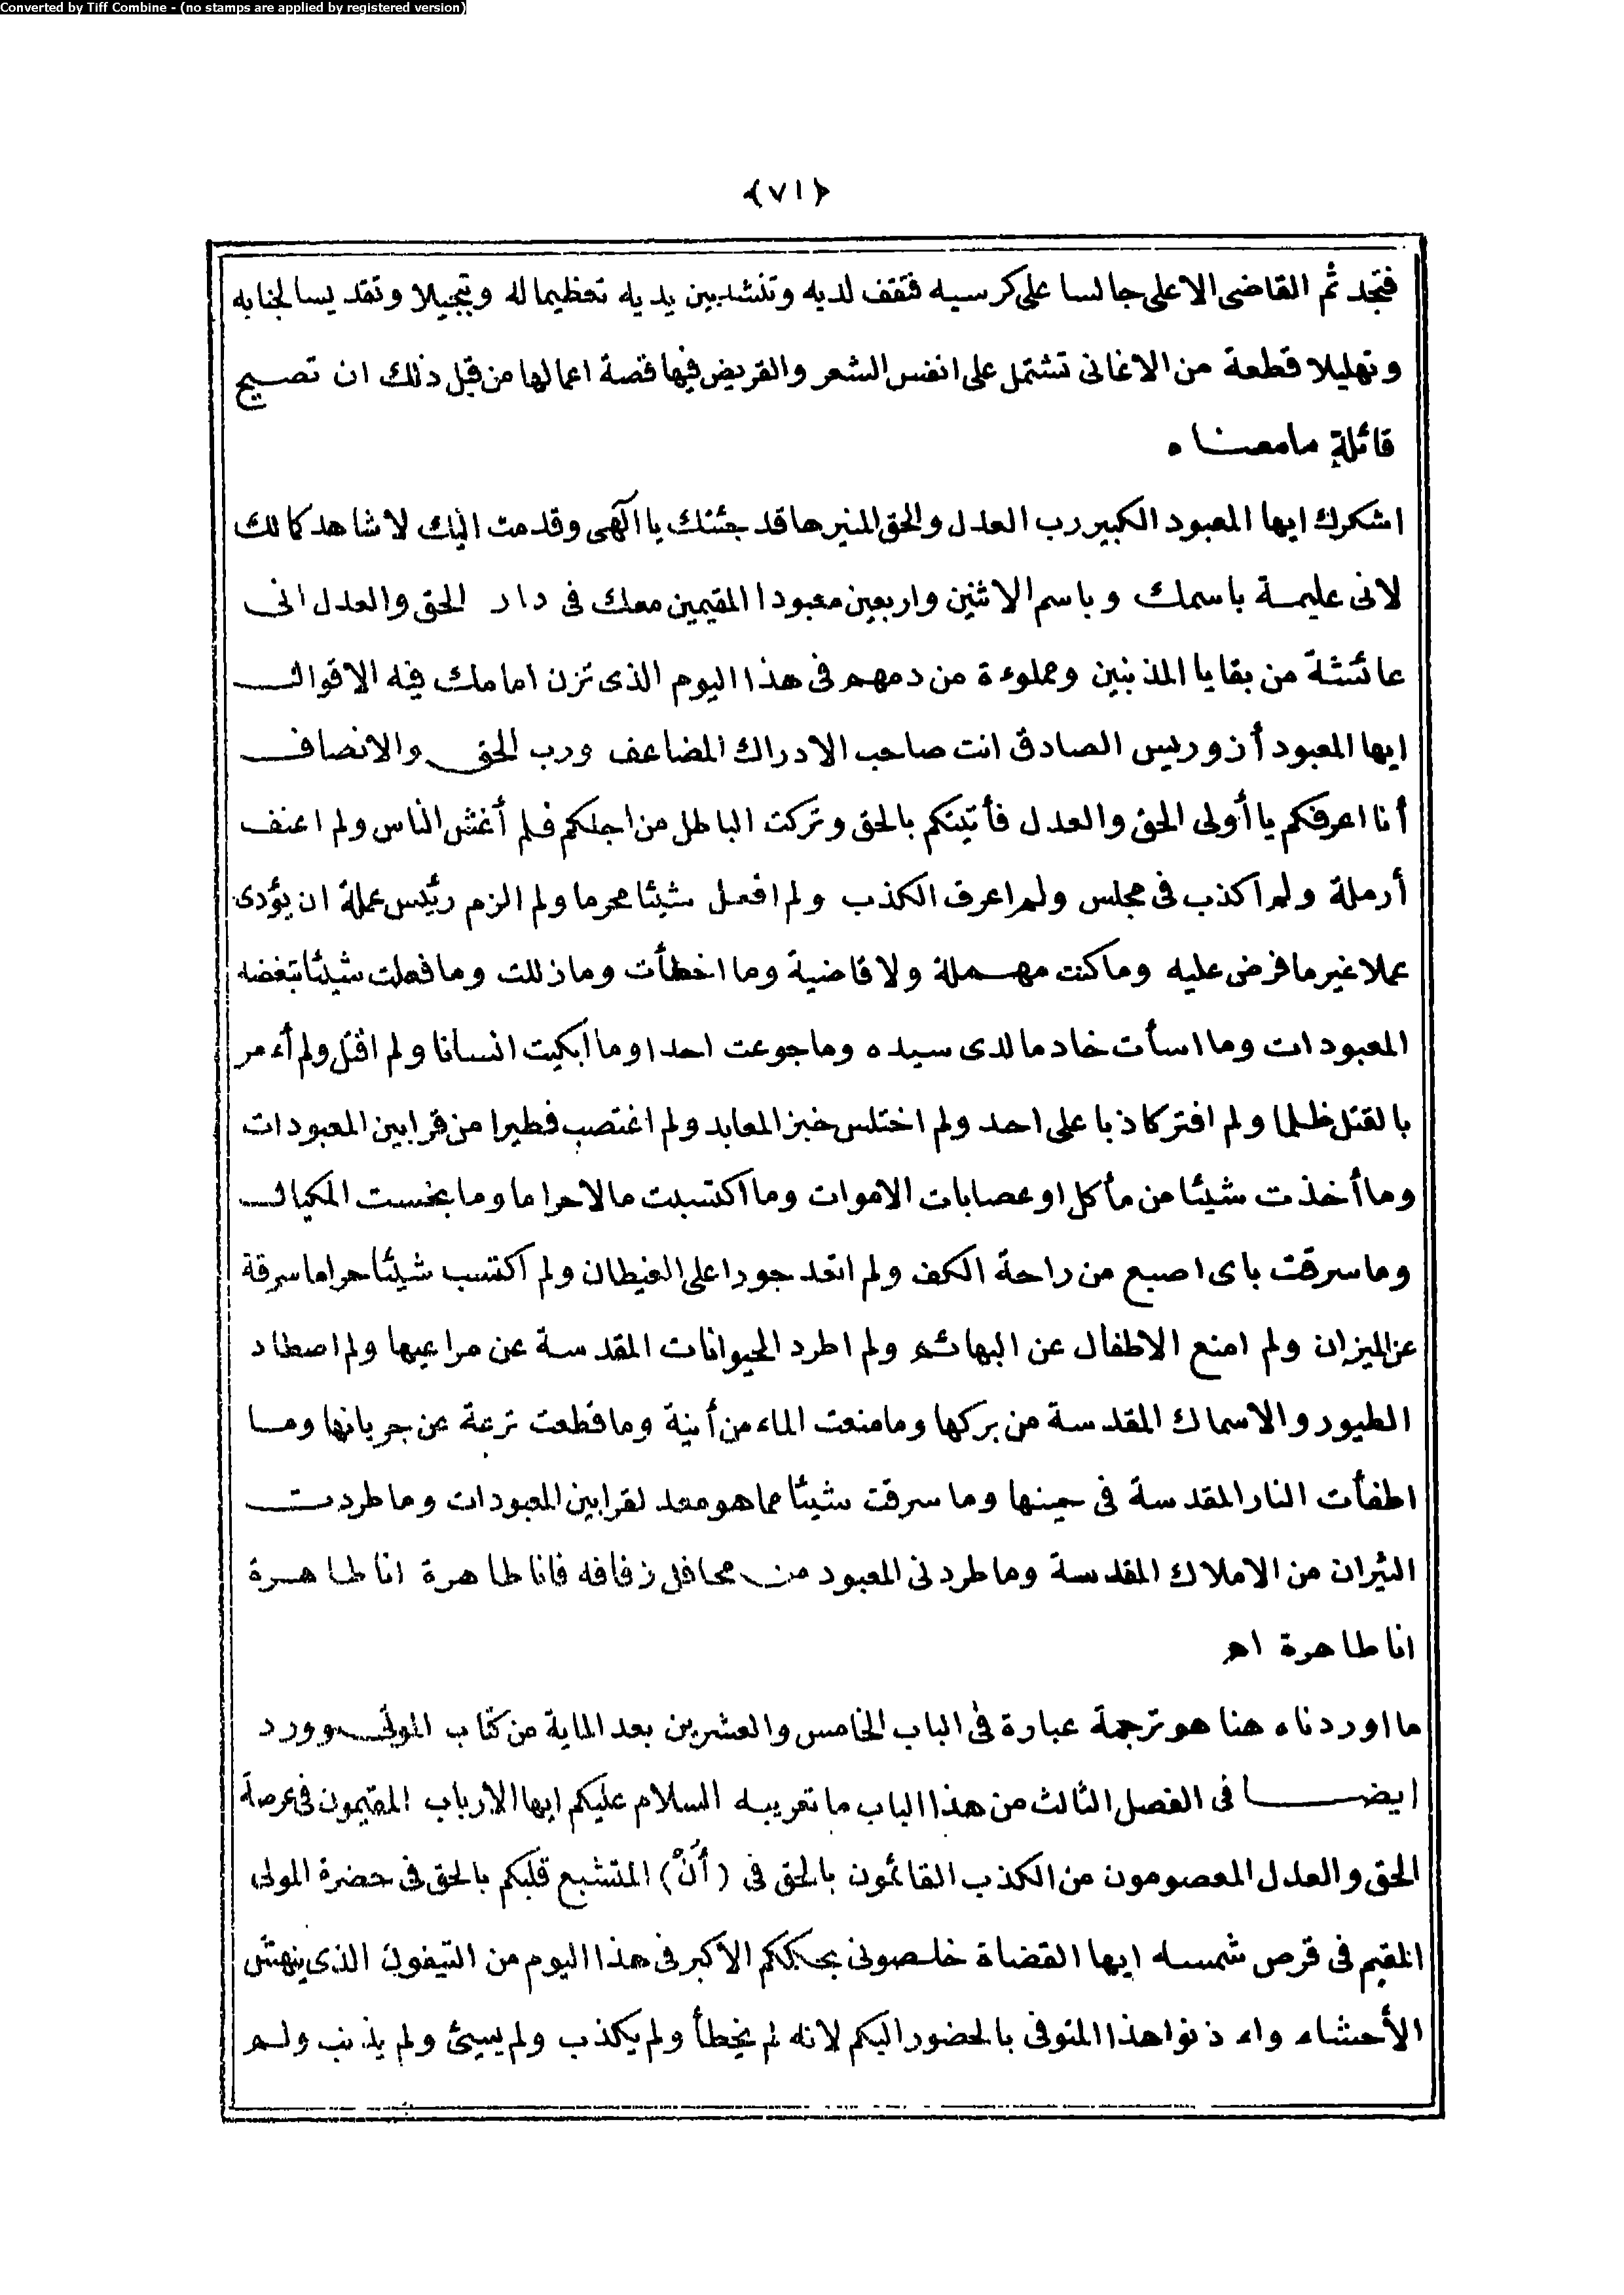 Converted by Tiff Combine - (no stamps are applied by registered version)
﴿٧١﴾
فتجد ثم القاضى الاعلى جالسا على كرسيه فتقف لديه وتنشد بين يديه تعظيما له وتبجيلا وتقديسا لجنابه
وتهليلا قطعة من الاغانى تشتمل على انفس الشعر والقريض فيها قصة اعمالها من قبل ذلك ان تصيح
قائلة ما معناه
اشكرك ايها المعبود الكبير رب العدل والحق المنير ها قد جئتك يا الهى وقدمت اليك لاشاهد كمالك
لانى عليمة باسمك وباسم الاثنين واربعين معبودا المقيمين معك فى دار الحق والعدل انى
عائشة من بقايا المذنبين ومملوءة من دمهم فى هذا اليوم الذى تزن امامك فيه الاقوال
ايها المعبود أزوريس الصادق انت صاحب الادراك المضاعف ورب الحق والانصاف
أنا اعرفكم يا أولى الحق والعدل فأتيتكم بالحق وتركت الباطل من اجلكم فلم أغش الناس ولم اعنف
أرملة ولم اكذب فى مجلس ولم اعرف الكذب ولم افعل شيئا محرما ولم الزم رئيس عملة ان يؤدى
عملا غير ما فرض عليه وما كنت مهملة ولا قاضية وما اخطأت وما ذللت وما فعلت شيئا تبغضه
المعبودات وما اسأت خادما لدى سيده وما جوعت احدا وما أبكيت انسانا ولم اقتل ولم أءمر
بالقتل ظلما ولم افتر كاذبا على احد ولم اختلس خبز المعابد ولم اغتصب فطيرا من قرابين المعبودات
وما أخذت شيئا من مأكل او عصابات الاموات وما اكتسبت مالا حراما وما بخست المكيال
وما سرقت باى اصبع من راحة الكف ولم اتعد جورا على الغيطان ولم اكتسب شيئا حراما سرقة
عن الميزان ولم امنع الاطفال عن البهائم ولم اطرد الحيوانات المقدسة عن مراعيها ولم اصطاد
الطيور والاسماك المقدسة من بركها وما منعت الماء من أنية وما قطعت ترعة عن جريانها وما
اطفأت النار المقدسة فى حينها وما سرقت شيئا مما هو معد لقرابين المعبودات وما طردت
الثيران من الاملاك المقدسة وما طردنى المعبود من محافل زفافه فانا طاهرة انا طاهرة
انا طاهرة اه
ما اوردناه هنا هو ترجمة عبارة فى الباب الخامس والعشرين بعد الماية من كتاب الموتى وورد
ايضا فى الفصل الثالث من هذا الباب ما تعريبه السلام عليكم ايها الارباب المقيمون فى عرصة
الحق والعدل المعصومون من الكذب القائمون بالحق فى (أَنْ) المتشبع قلبكم بالحق فى حضرة المولى
المقيم فى قرص شمسه ايها القضاة خلصونى بحككم الاكبر فى هذا اليوم من التيفون الذى ينهش
الأحشاء واءذنوا هذا المتوفى بالحضور اليكم لانه لم يخطأ ولم يكذب ولم يسيئ ولم يذنب ولم